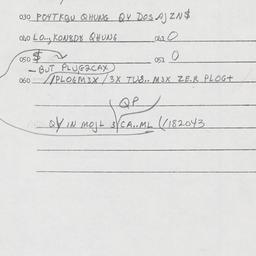 030 POYTKQU QHUNG QY DOS AJZN$
040 LO KONBDY QHUNG 041 0
050 $ 051 0
- BUT PLUG2CAX)
060 //PLOGM3X /3X TUB.. M3X ZE.R PLOG+
QP
QY IN MOJL 3 CA..ML (/182043